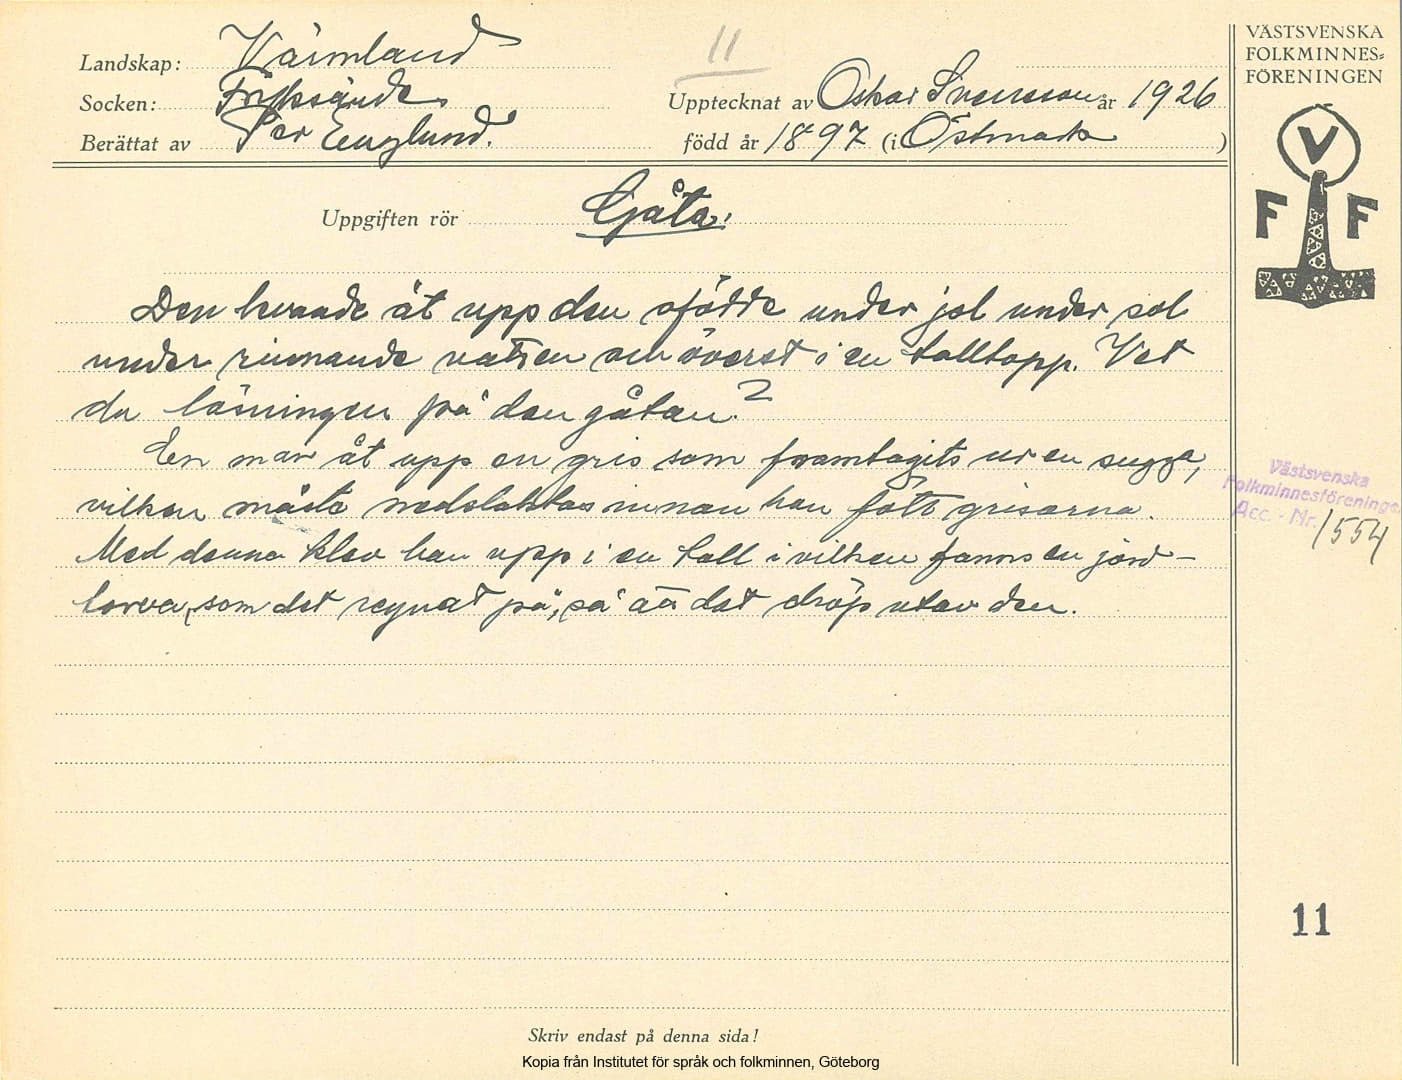 Landskap: Värmland
Socken: Fryksände
Berättat av Per Englund.
11
Upptecknat av Oskar Svensson år 1926
född år 1897 (i Östmark )
VÄSTSVENSKA
FOLKMINNES=
FÖRENINGEN
V
F F
Uppgiften rör Gåta.
Den levande åt upp den ofödde under jol under sol
under rinnande vatten och överst i en talltopp. Vet
du lösningen på den gåtan?
En man åt upp en gris som framtagits ur en sugga,
vilken måste nedslaktas innan hon fött grisarna.
Med denna klev han upp i en tall i vilken fanns en jord-
torva, som det regnat på, så att det dröp utav den.
Västsvenska
Folkminnesföreninge
Acc. - Nr. 1554
11
Skriv endast på denna sida!
Kopia från Institutet för språk och folkminnen, Göteborg